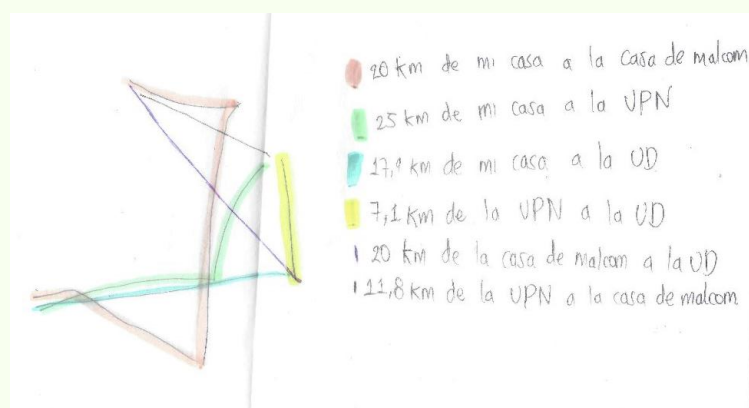 20 km de mi casa a la casa de malcom
25 km de mi casa a la UPN
17,9 km de mi casa a la UD
7,1 km de la UPN a la UD
20 km de la casa de malcom a la UD
11,8 km de la UPN a la casa de malcom